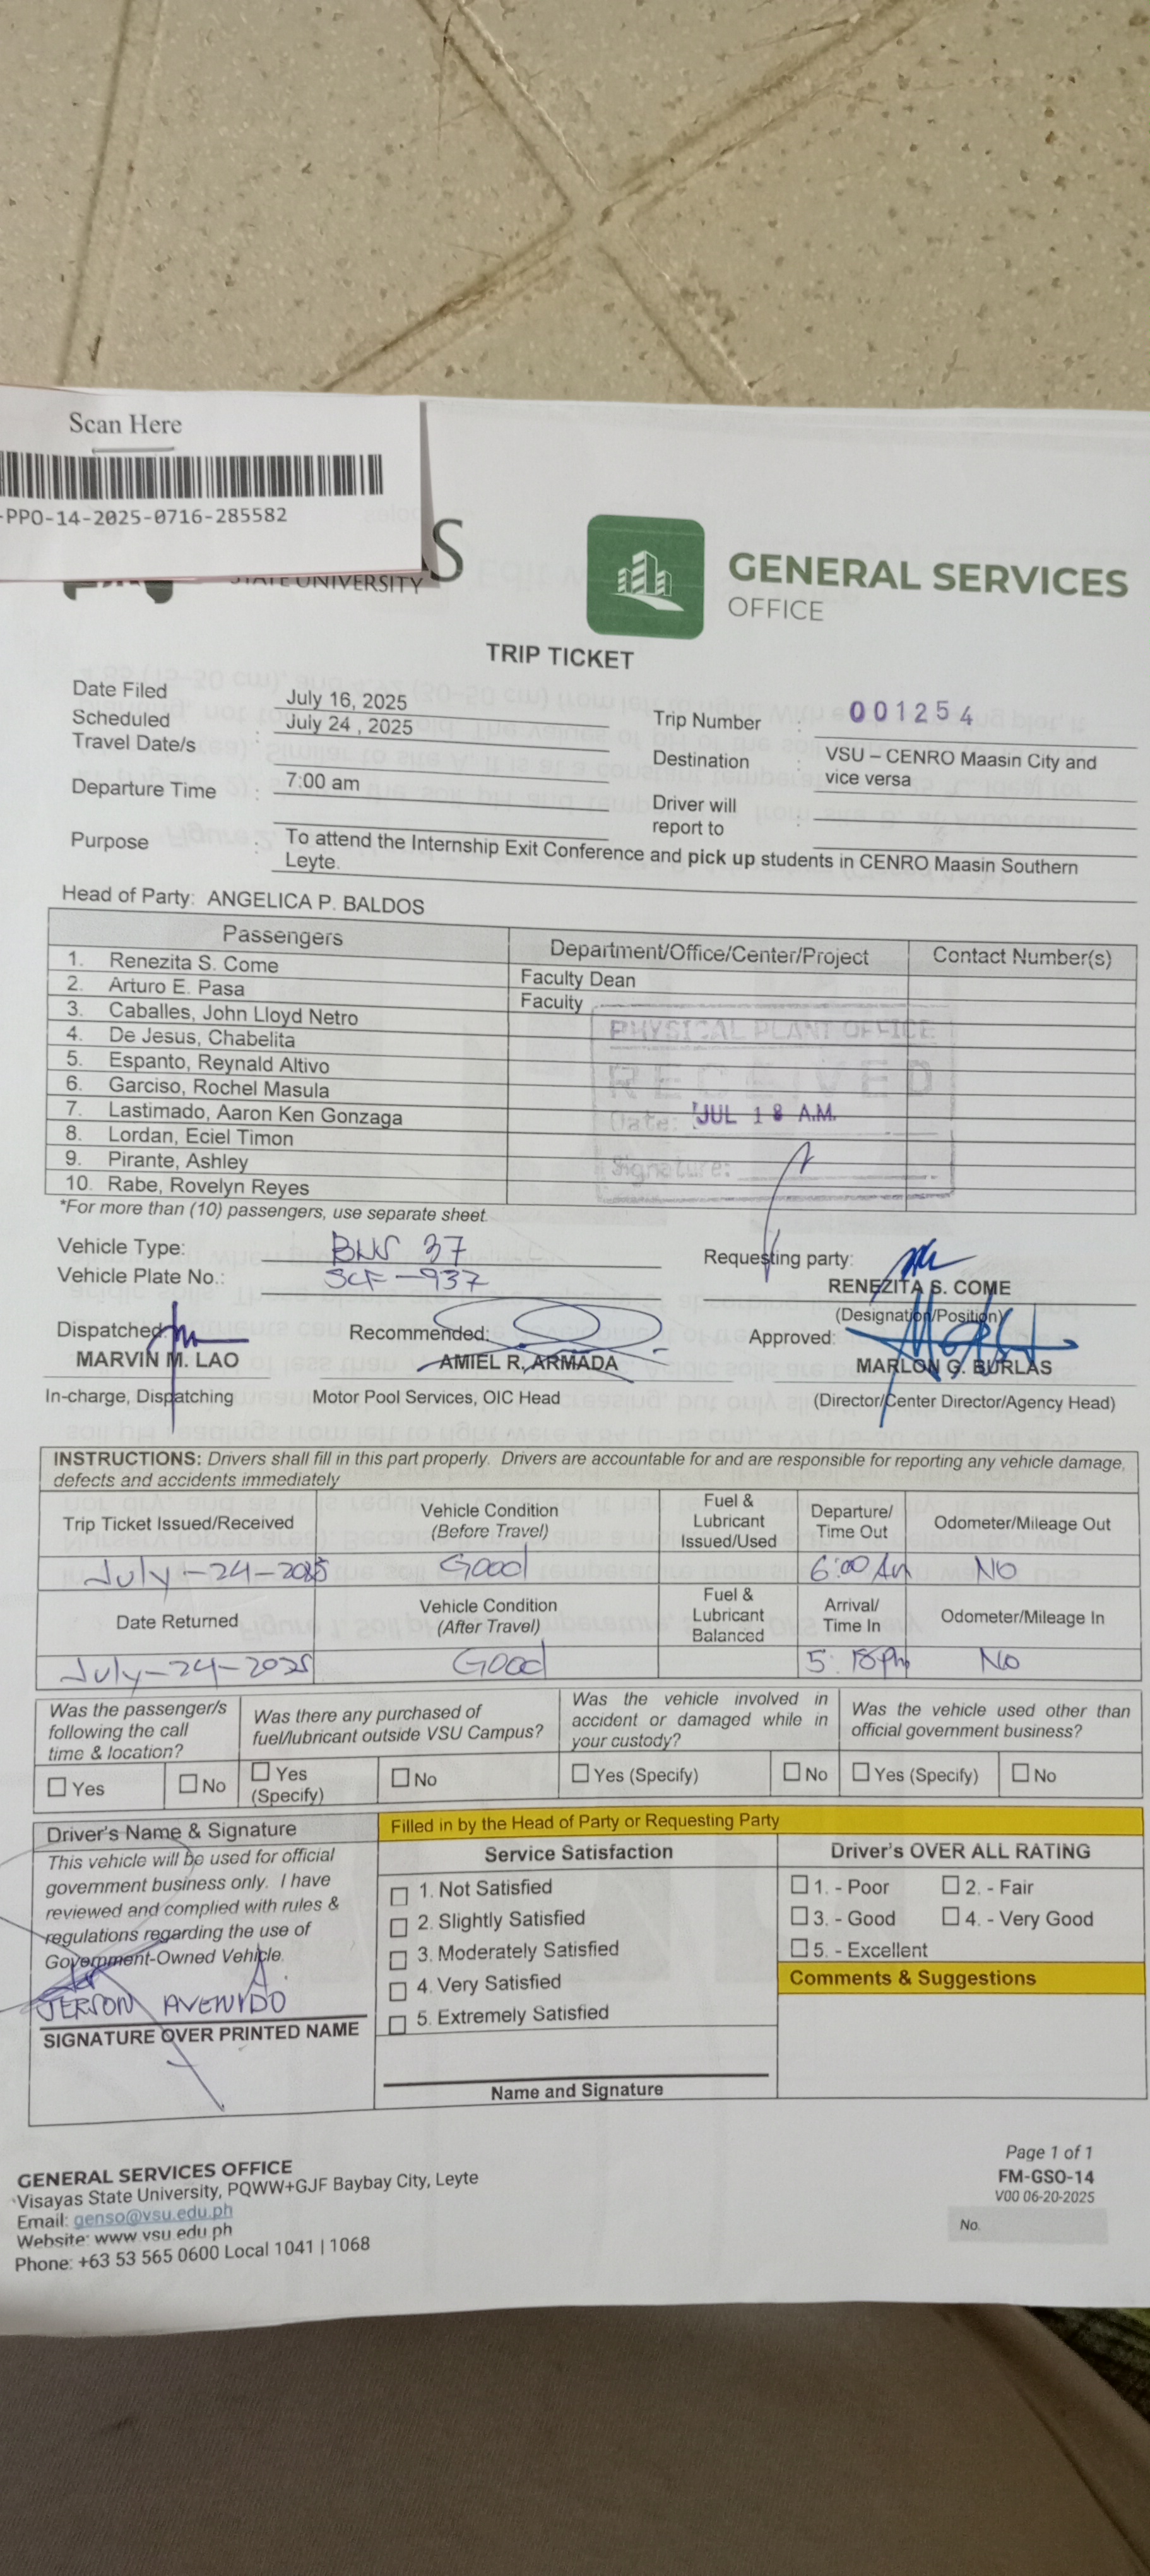 Scan Here
-PPO-14-2025-0716-285582
S
STATE UNIVERSITY
GENERAL SERVICES
OFFICE
TRIP TICKET
Date Filed July 16, 2025
Scheduled Travel Date/s : July 24 , 2025
Trip Number : 001254
Destination : VSU – CENRO Maasin City and
vice versa
Departure Time : 7:00 am
Driver will
report to :
Purpose : To attend the Internship Exit Conference and pick up students in CENRO Maasin Southern
Leyte.
Head of Party: ANGELICA P. BALDOS
Passengers Department/Office/Center/Project Contact Number(s)
1. Renezita S. Come Faculty Dean
2. Arturo E. Pasa Faculty
3. Caballes, John Lloyd Netro
4. De Jesus, Chabelita
5. Espanto, Reynald Altivo
6. Garciso, Rochel Masula
7. Lastimado, Aaron Ken Gonzaga
8. Lordan, Eciel Timon
9. Pirante, Ashley
10. Rabe, Rovelyn Reyes
PHYSICAL PLANT OFFICE
RECEIVED
Date: JUL 18 A.M.
Signature:
*For more than (10) passengers, use separate sheet.
Vehicle Type: 37
Vehicle Plate No.: SCF-937
Requesting party:
RENEZITA S. COME
(Designation/Position)
Dispatched: Recommended: Approved:
MARVIN M. LAO AMIEL R. ARMADA MARLON G. BURLAS
In-charge, Dispatching Motor Pool Services, OIC Head (Director/Center Director/Agency Head)
INSTRUCTIONS: Drivers shall fill in this part properly. Drivers are accountable for and are responsible for reporting any vehicle damage,
defects and accidents immediately
Trip Ticket Issued/Received Vehicle Condition (Before Travel) Fuel & Lubricant Issued/Used Departure/ Time Out Odometer/Mileage Out
July-24-2025 Good 6:00 Am NO
Date Returned Vehicle Condition (After Travel) Fuel & Lubricant Balanced Arrival/ Time In Odometer/Mileage In
July-24-2025 Good 5:18 Pm NO
Was the passenger/s following the call time & location? Was there any purchased of fuel/lubricant outside VSU Campus? Was the vehicle involved in accident or damaged while in your custody? Was the vehicle used other than official government business?
Yes No Yes (Specify) No Yes (Specify) No Yes (Specify) No
Driver's Name & Signature
This vehicle will be used for official
government business only. I have
reviewed and complied with rules &
regulations regarding the use of
Government-Owned Vehicle.
JERSON A. AVENIDO
SIGNATURE OVER PRINTED NAME
Filled in by the Head of Party or Requesting Party
Service Satisfaction
1. Not Satisfied
2. Slightly Satisfied
3. Moderately Satisfied
4. Very Satisfied
5. Extremely Satisfied
Name and Signature
Driver's OVER ALL RATING
1. - Poor 2. - Fair
3. - Good 4. - Very Good
5. - Excellent
Comments & Suggestions
GENERAL SERVICES OFFICE
Visayas State University, PQWW+GJF Baybay City, Leyte
Email: genso@vsu.edu.ph
Website: www.vsu.edu.ph
Phone: +63 53 565 0600 Local 1041 | 1068
Page 1 of 1
FM-GSO-14
V00 06-20-2025
No.